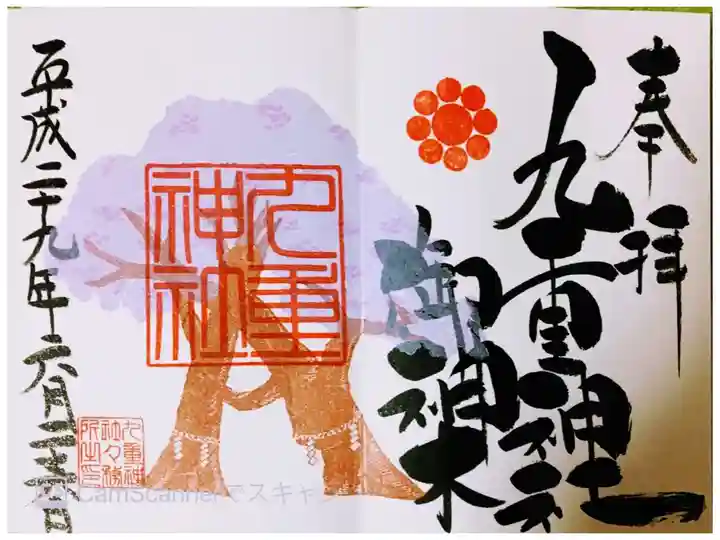 奉拝
九重神社
御神木
九重神社
平成二十九年六月二十六日
九重神社々務所之印
CamScannerでスキャン